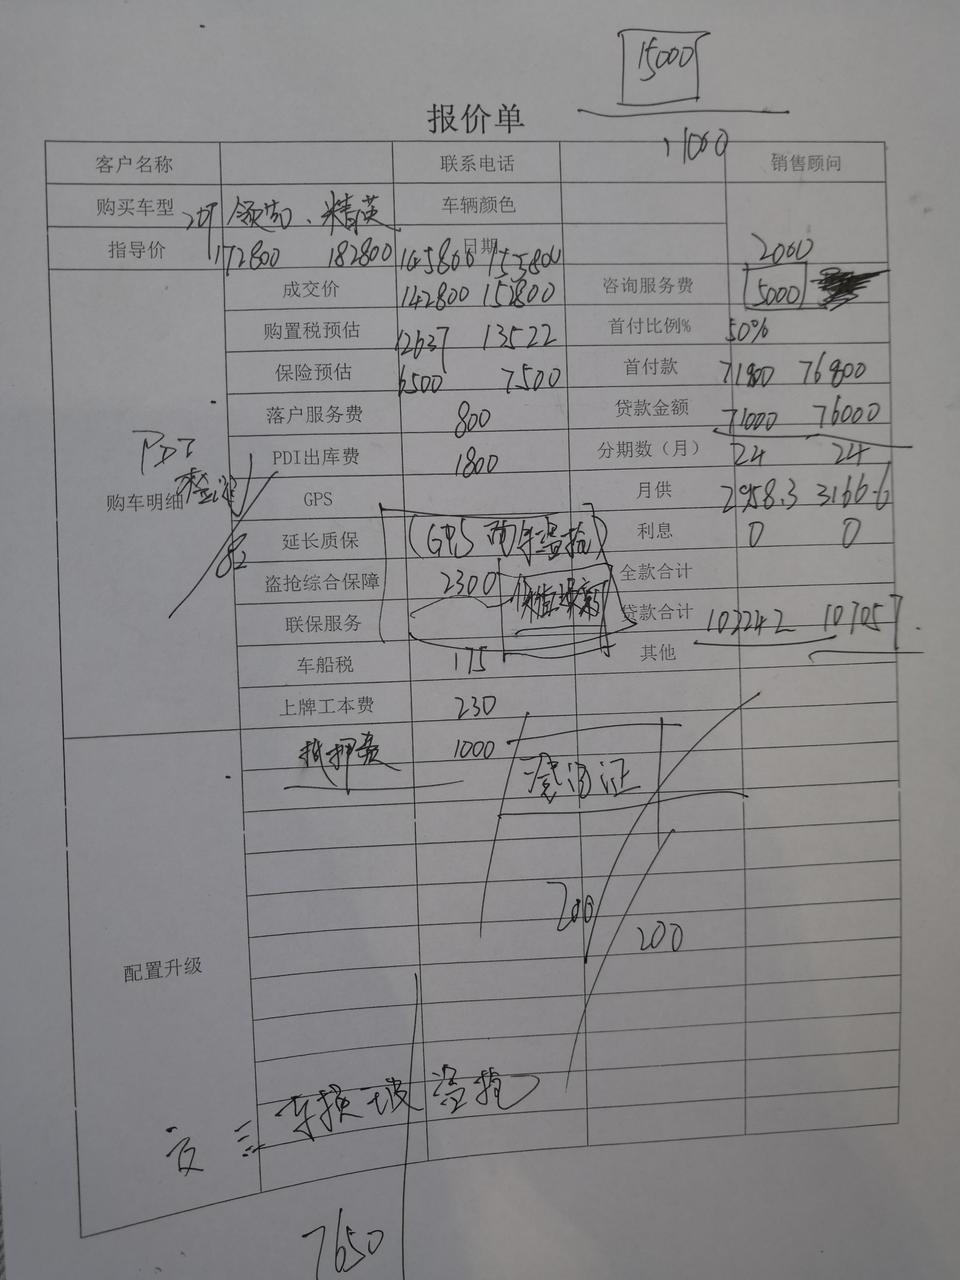 15000
报价单
11000
客户名称 联系电话 销售顾问
购买车型 领尚、精英 车辆颜色
指导价 172800 182800 日期 145800 155800 2000
成交价 142800 152800 咨询服务费 5000
购置税预估 12637 13522 首付比例% 50%
保险预估 6500 7500 首付款 71800 76800
落户服务费 800 贷款金额 71000 76000
PDI PDI出库费 1800 分期数（月） 24 24
购车明细 GPS 月供 2958.3 3166.6
延长质保 (GPS 两年盗抢) 利息 0 0
盗抢综合保障 2300 全款合计
联保服务 贷款合计 103242 107057
车船税 175 其他
上牌工本费 230
抵押费 1000
200
200
配置升级
盗抢
7650